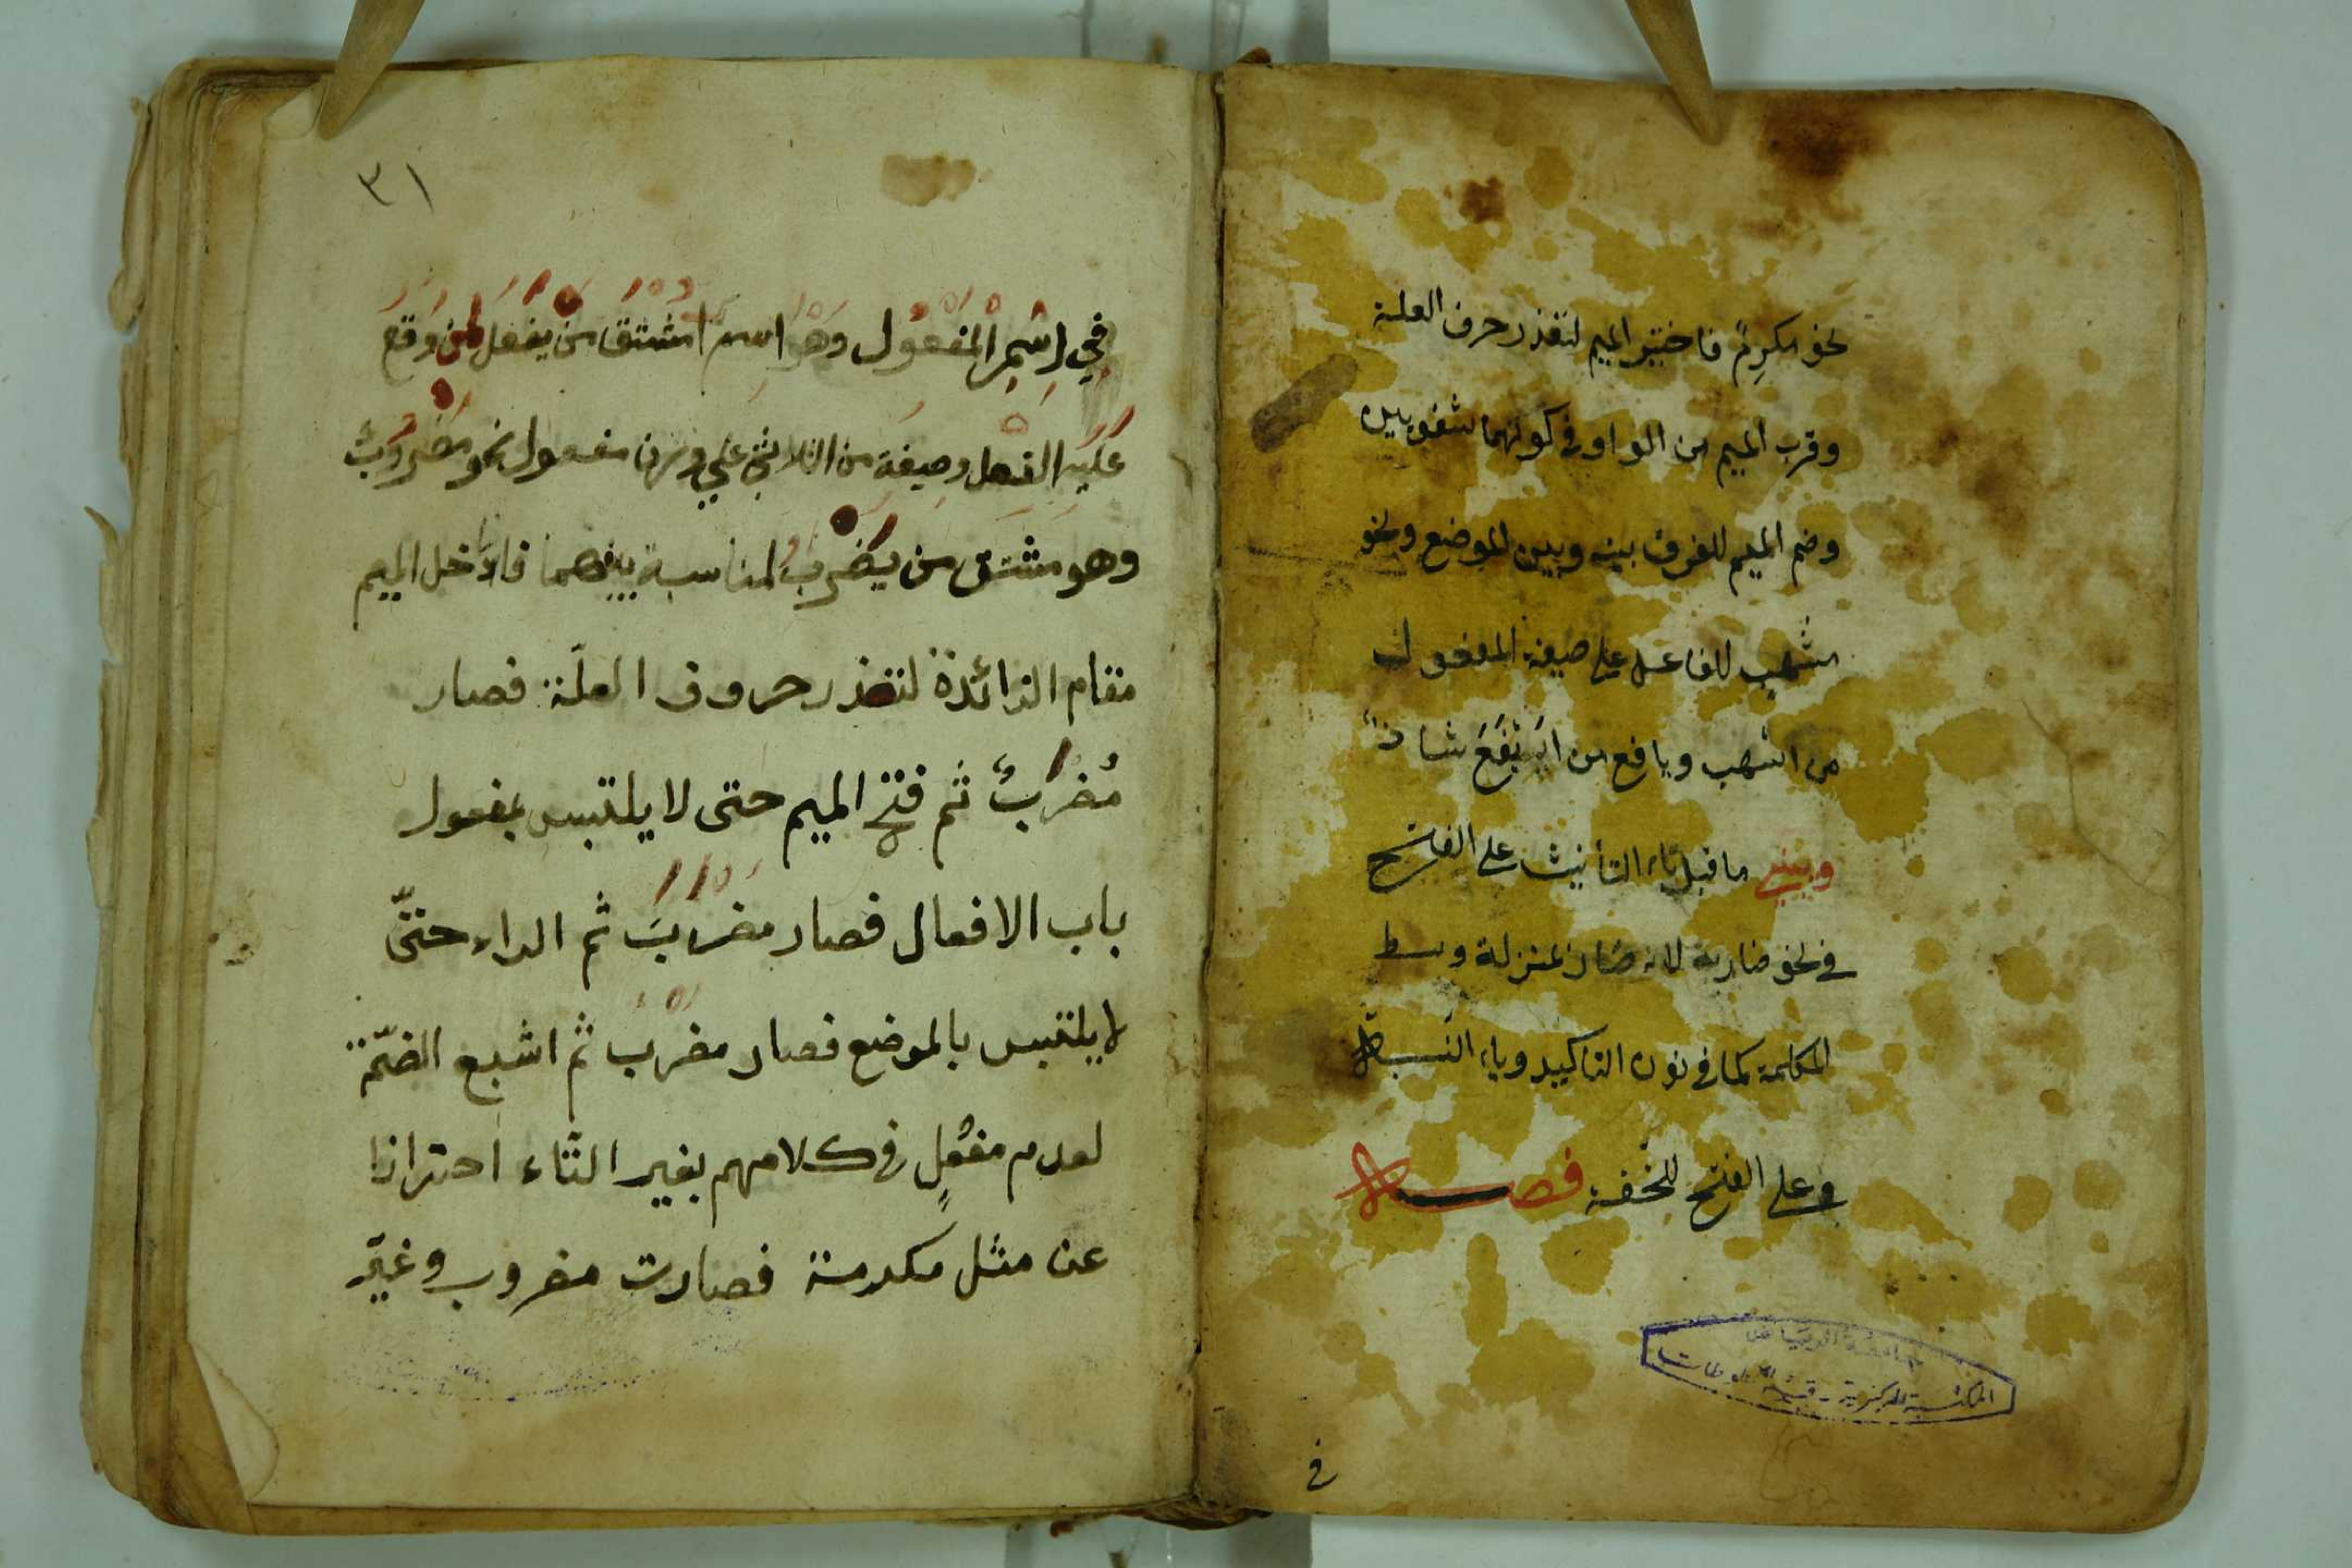 نحو مكرِمٌ فاختير الميم لتعذر حرف العلة
وقرب الميم من الواو في كونهما شفويين
وضم الميم للفرق بينه وبين الموضع ونحو
مُسْهب للفاعل على صيغة المفعول
من اسهب ويافع من ايفع شاذ
ويبنى ما قبل تاء التأنيث على الفتح
في نحو ضاربة لانه صار بمنزلة وسط
الكلمة كما في نون التاكيد وياء النسبة
وعلى الفتح للخفة فصل
في
جامعة الرياض
المكتبة المركزية - قسم المخطوطات
٣١
في اِسْمِ المَفْعُول وهو اسم اشتق من يفعل لمن وقع
عَلَيْهِ الفعل وصيغة من الثلاثي على وزن مفعول نحو مَضْرُوبٌ
وهو مشتق من يُضْرَبُ لمناسبة بينهما فادخل الميم
مقام الزائدة لتعذر حروف العلّة فصار
مُضْرَبٌ ثم فتح الميم حتى لا يلتبس بمفعول
باب الافعال فصار مضرَبَ ثم الراء حتىّ
لا يلتبس بالموضع فصار مضرُب ثم اشبع الضمّة
لعدم مفعُلٍ في كلامهم بغير التّاء احترازا
عن مثل مكرمة فصارت مضروب وغيّر